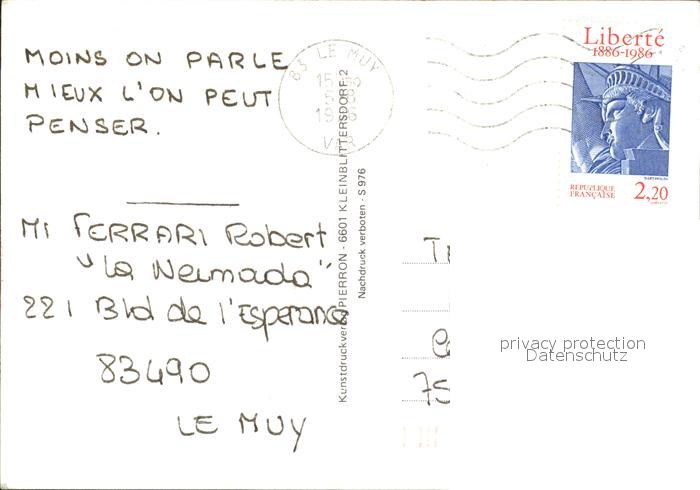 MOINS ON PARLE
MIEUX L'ON PEUT
PENSER.
MI FERRARI Robert
"La Neimada"
221 Bld de l'Esperance
83490
LE MUY
83 LE MUY
VAR
Kunstdruckverlag PIERRON - 6601 KLEINBLITTERSDORF 2
Nachdruck verboten - S 976
Liberté
1886-1986
REPUBLIQUE
FRANÇAISE
2,20
75
privacy protection
Datenschutz